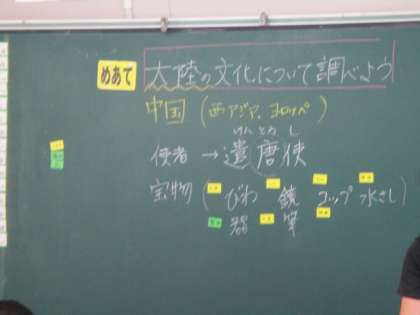 めあて 大陸の文化について調べよう
中国 (西アジア、ヨーロッパ)
けんとうし
使者 → 遣唐使
宝物 (びわ 鏡 コップ 水さし
器 筆 )